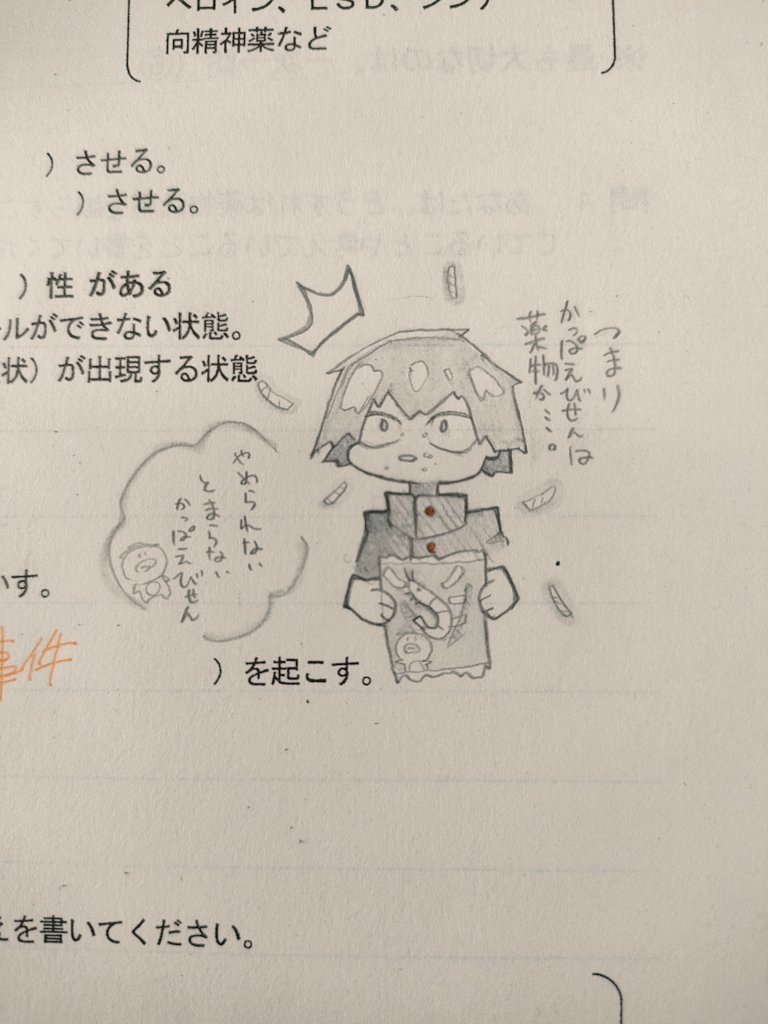 ヘロイン、LSD、シンナ
向精神薬など
）させる。
）させる。
）性 がある
ルができない状態。
状）が出現する状態
つまり
かっぱえびせんは
薬物か…。
やめられない
とまらない
かっぱえびせん
いす。
事件
）を起こす。
えを書いてください。